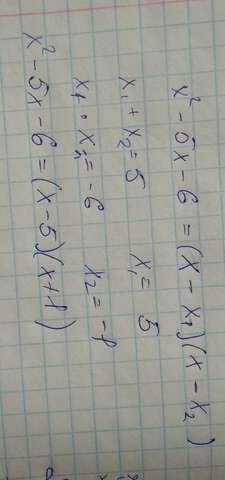 x² - 5x - 6 = (x - x₁)(x - x₂)
x₁ + x₂ = 5 x₁ = 5
x₁ · x₂ = -6 x₂ = -1
x² - 5x - 6 = (x - 5)(x + 1)